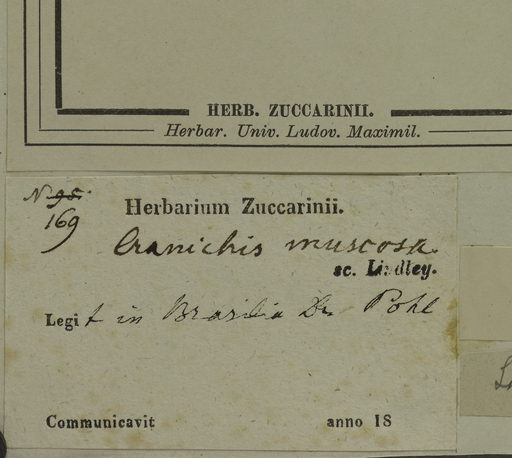 HERB. ZUCCARINII.
Herbar. Univ. Ludov. Maximil.
N 95.
169
Herbarium Zuccarinii.
Cranichis muscosa.
sc. Lindley.
Legit in Brasilia Dr Pohl
Communicavit anno 18